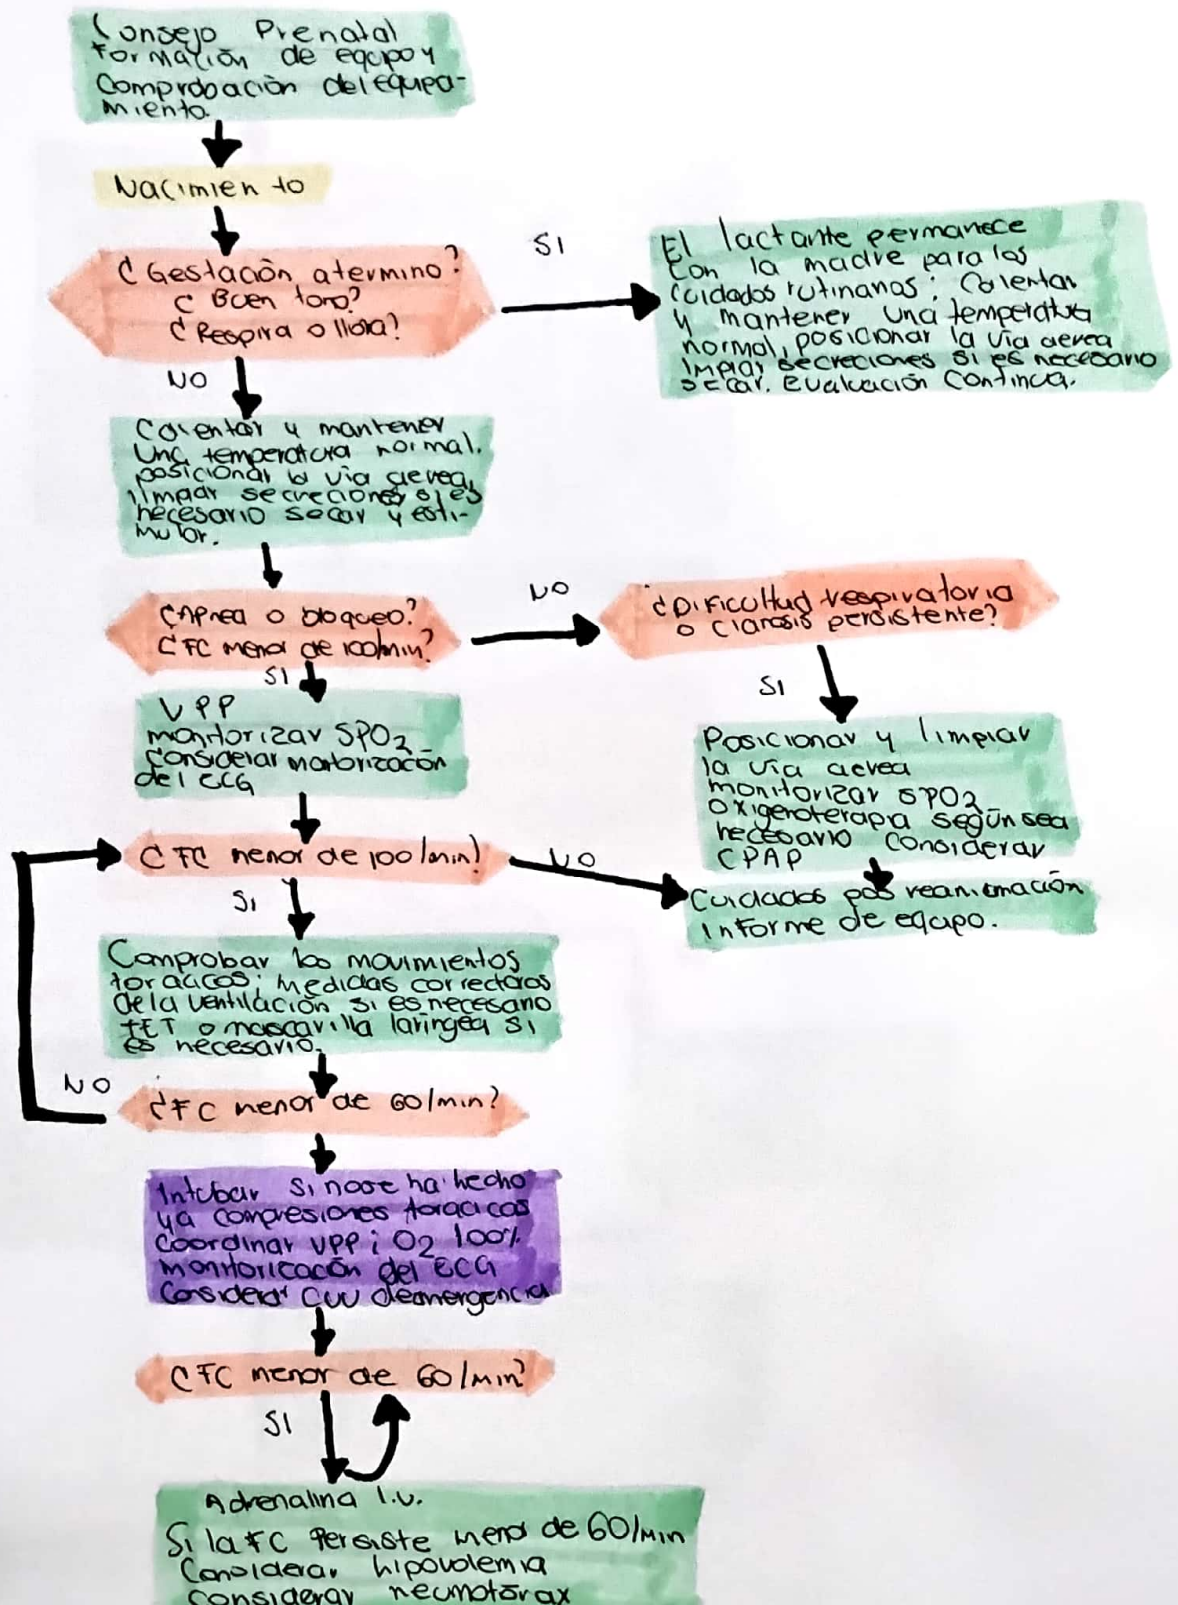 Consejo Prenatal
Formación de equipo y
Comprobación del equipa-
miento.
Nacimiento
¿Gestación a termino?
¿Buen tono?
¿Respira o llora?
SI
El lactante permanece
con la madre para los
cuidados rutinarios: Calentar
y mantener una temperatura
normal, posicionar la via aerea
limpiar secreciones si es necesario
secar. Evaluación continua.
NO
Calentar y mantener
una temperatura normal.
posicionar la via aerea,
limpiar secreciones si es
necesario secar y esti-
mular.
¿Apnea o bloqueo?
¿FC menor de 100/min?
NO
¿Dificultad respiratoria
o cianosis persistente?
SI
SI
VPP
monitorizar SPO2
Considerar monitorización
del ECG
Posicionar y limpiar
la via aerea
monitorizar SPO2
oxigenoterapia según sea
necesario Considerar
CPAP
¿FC menor de 100/min?
NO
Cuidados pos reanimación
Informe de equipo.
SI
Comprobar los movimientos
toracicos; medidas correctoras
de la ventilación si es necesario
TET o mascarilla laringea si
es necesario.
NO
¿FC menor de 60/min?
Intubar si no se ha hecho
ya compresiones toracicas
Coordinar VPP; O2 100%
monitorización del ECG
Considerar CUU de emergencia
¿FC menor de 60/min?
SI
Adrenalina I.V.
Si la FC Persiste menor de 60/min
Considerar hipovolemia
Considerar neumotórax